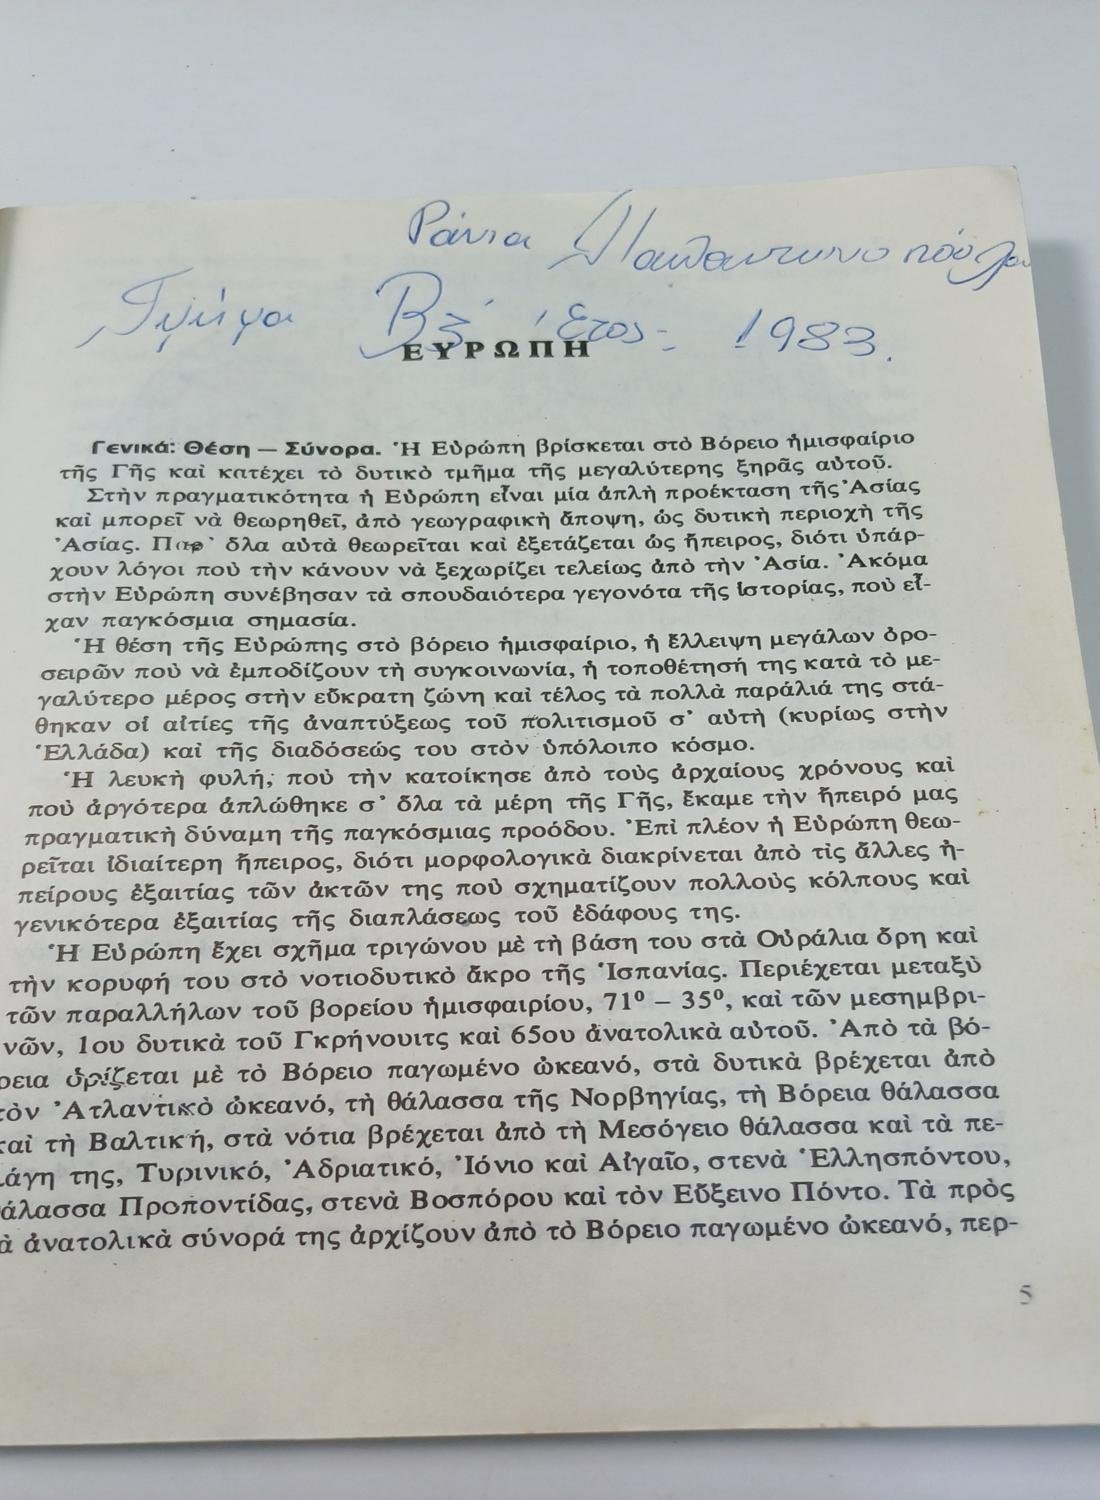 Ράνια Παπαντωνοπούλου
Τμήμα Β3 Έτος: 1983.
ΕΥΡΩΠΗ
Γενικά: Θέση — Σύνορα. Ἡ Εὐρώπη βρίσκεται στὸ Βόρειο ἡμισφαίριο
τῆς Γῆς καὶ κατέχει τὸ δυτικὸ τμῆμα τῆς μεγαλύτερης ξηρᾶς αὐτοῦ.
Στὴν πραγματικότητα ἡ Εὐρώπη εἶναι μία ἁπλὴ προέκταση τῆς Ἀσίας
καὶ μπορεῖ νὰ θεωρηθεῖ, ἀπὸ γεωγραφικὴ ἄποψη, ὡς δυτικὴ περιοχὴ τῆς
Ἀσίας. Παρ᾽ ὅλα αὐτὰ θεωρεῖται καὶ ἐξετάζεται ὡς ἤπειρος, διότι ὑπάρ-
χουν λόγοι ποὺ τὴν κάνουν νὰ ξεχωρίζει τελείως ἀπὸ τὴν Ἀσία. Ἀκόμα
στὴν Εὐρώπη συνέβησαν τὰ σπουδαιότερα γεγονότα τῆς ἱστορίας, ποὺ εἶ-
χαν παγκόσμια σημασία.
Ἡ θέση τῆς Εὐρώπης στὸ βόρειο ἡμισφαίριο, ἡ ἔλλειψη μεγάλων ὀρο-
σειρῶν ποὺ νὰ ἐμποδίζουν τὴ συγκοινωνία, ἡ τοποθέτησή της κατὰ τὸ με-
γαλύτερο μέρος στὴν εὔκρατη ζώνη καὶ τέλος τὰ πολλὰ παράλιά της στά-
θηκαν οἱ αἰτίες τῆς ἀναπτύξεως τοῦ πολιτισμοῦ σ᾽ αὐτὴ (κυρίως στὴν
Ἑλλάδα) καὶ τῆς διαδόσεώς του στὸν ὑπόλοιπο κόσμο.
Ἡ λευκὴ φυλή, ποὺ τὴν κατοίκησε ἀπὸ τοὺς ἀρχαίους χρόνους καὶ
ποὺ ἀργότερα ἁπλώθηκε σ᾽ ὅλα τὰ μέρη τῆς Γῆς, ἔκαμε τὴν ἤπειρό μας
πραγματικὴ δύναμη τῆς παγκόσμιας προόδου. Ἐπὶ πλέον ἡ Εὐρώπη θεω-
ρεῖται ἰδιαίτερη ἤπειρος, διότι μορφολογικὰ διακρίνεται ἀπὸ τὶς ἄλλες ἠ-
πείρους ἐξαιτίας τῶν ἀκτῶν της ποὺ σχηματίζουν πολλοὺς κόλπους καὶ
γενικότερα ἐξαιτίας τῆς διαπλάσεως τοῦ ἐδάφους της.
Ἡ Εὐρώπη ἔχει σχῆμα τριγώνου μὲ τὴ βάση του στὰ Οὐράλια ὄρη καὶ
τὴν κορυφή του στὸ νοτιοδυτικὸ ἄκρο τῆς Ἱσπανίας. Περιέχεται μεταξὺ
τῶν παραλλήλων τοῦ βορείου ἡμισφαιρίου, 71⁰ – 35⁰, καὶ τῶν μεσημβρι-
νῶν, 1ου δυτικὰ τοῦ Γκρήνουιτς καὶ 65ου ἀνατολικὰ αὐτοῦ. Ἀπὸ τὰ βό-
ρεια ὁρίζεται μὲ τὸ Βόρειο παγωμένο ὠκεανό, στὰ δυτικὰ βρέχεται ἀπὸ
τὸν Ἀτλαντικὸ ὠκεανό, τὴ θάλασσα τῆς Νορβηγίας, τὴ Βόρεια θάλασσα
καὶ τὴ Βαλτική, στὰ νότια βρέχεται ἀπὸ τὴ Μεσόγειο θάλασσα καὶ τὰ πε-
λάγη της, Τυρινικό, Ἀδριατικό, Ἰόνιο καὶ Αἰγαῖο, στενὰ Ἑλλησπόντου,
άλασσα Προποντίδας, στενὰ Βοσπόρου καὶ τὸν Εὔξεινο Πόντο. Τὰ πρὸς
ὰ ἀνατολικὰ σύνορά της ἀρχίζουν ἀπὸ τὸ Βόρειο παγωμένο ὠκεανό, περ-
5